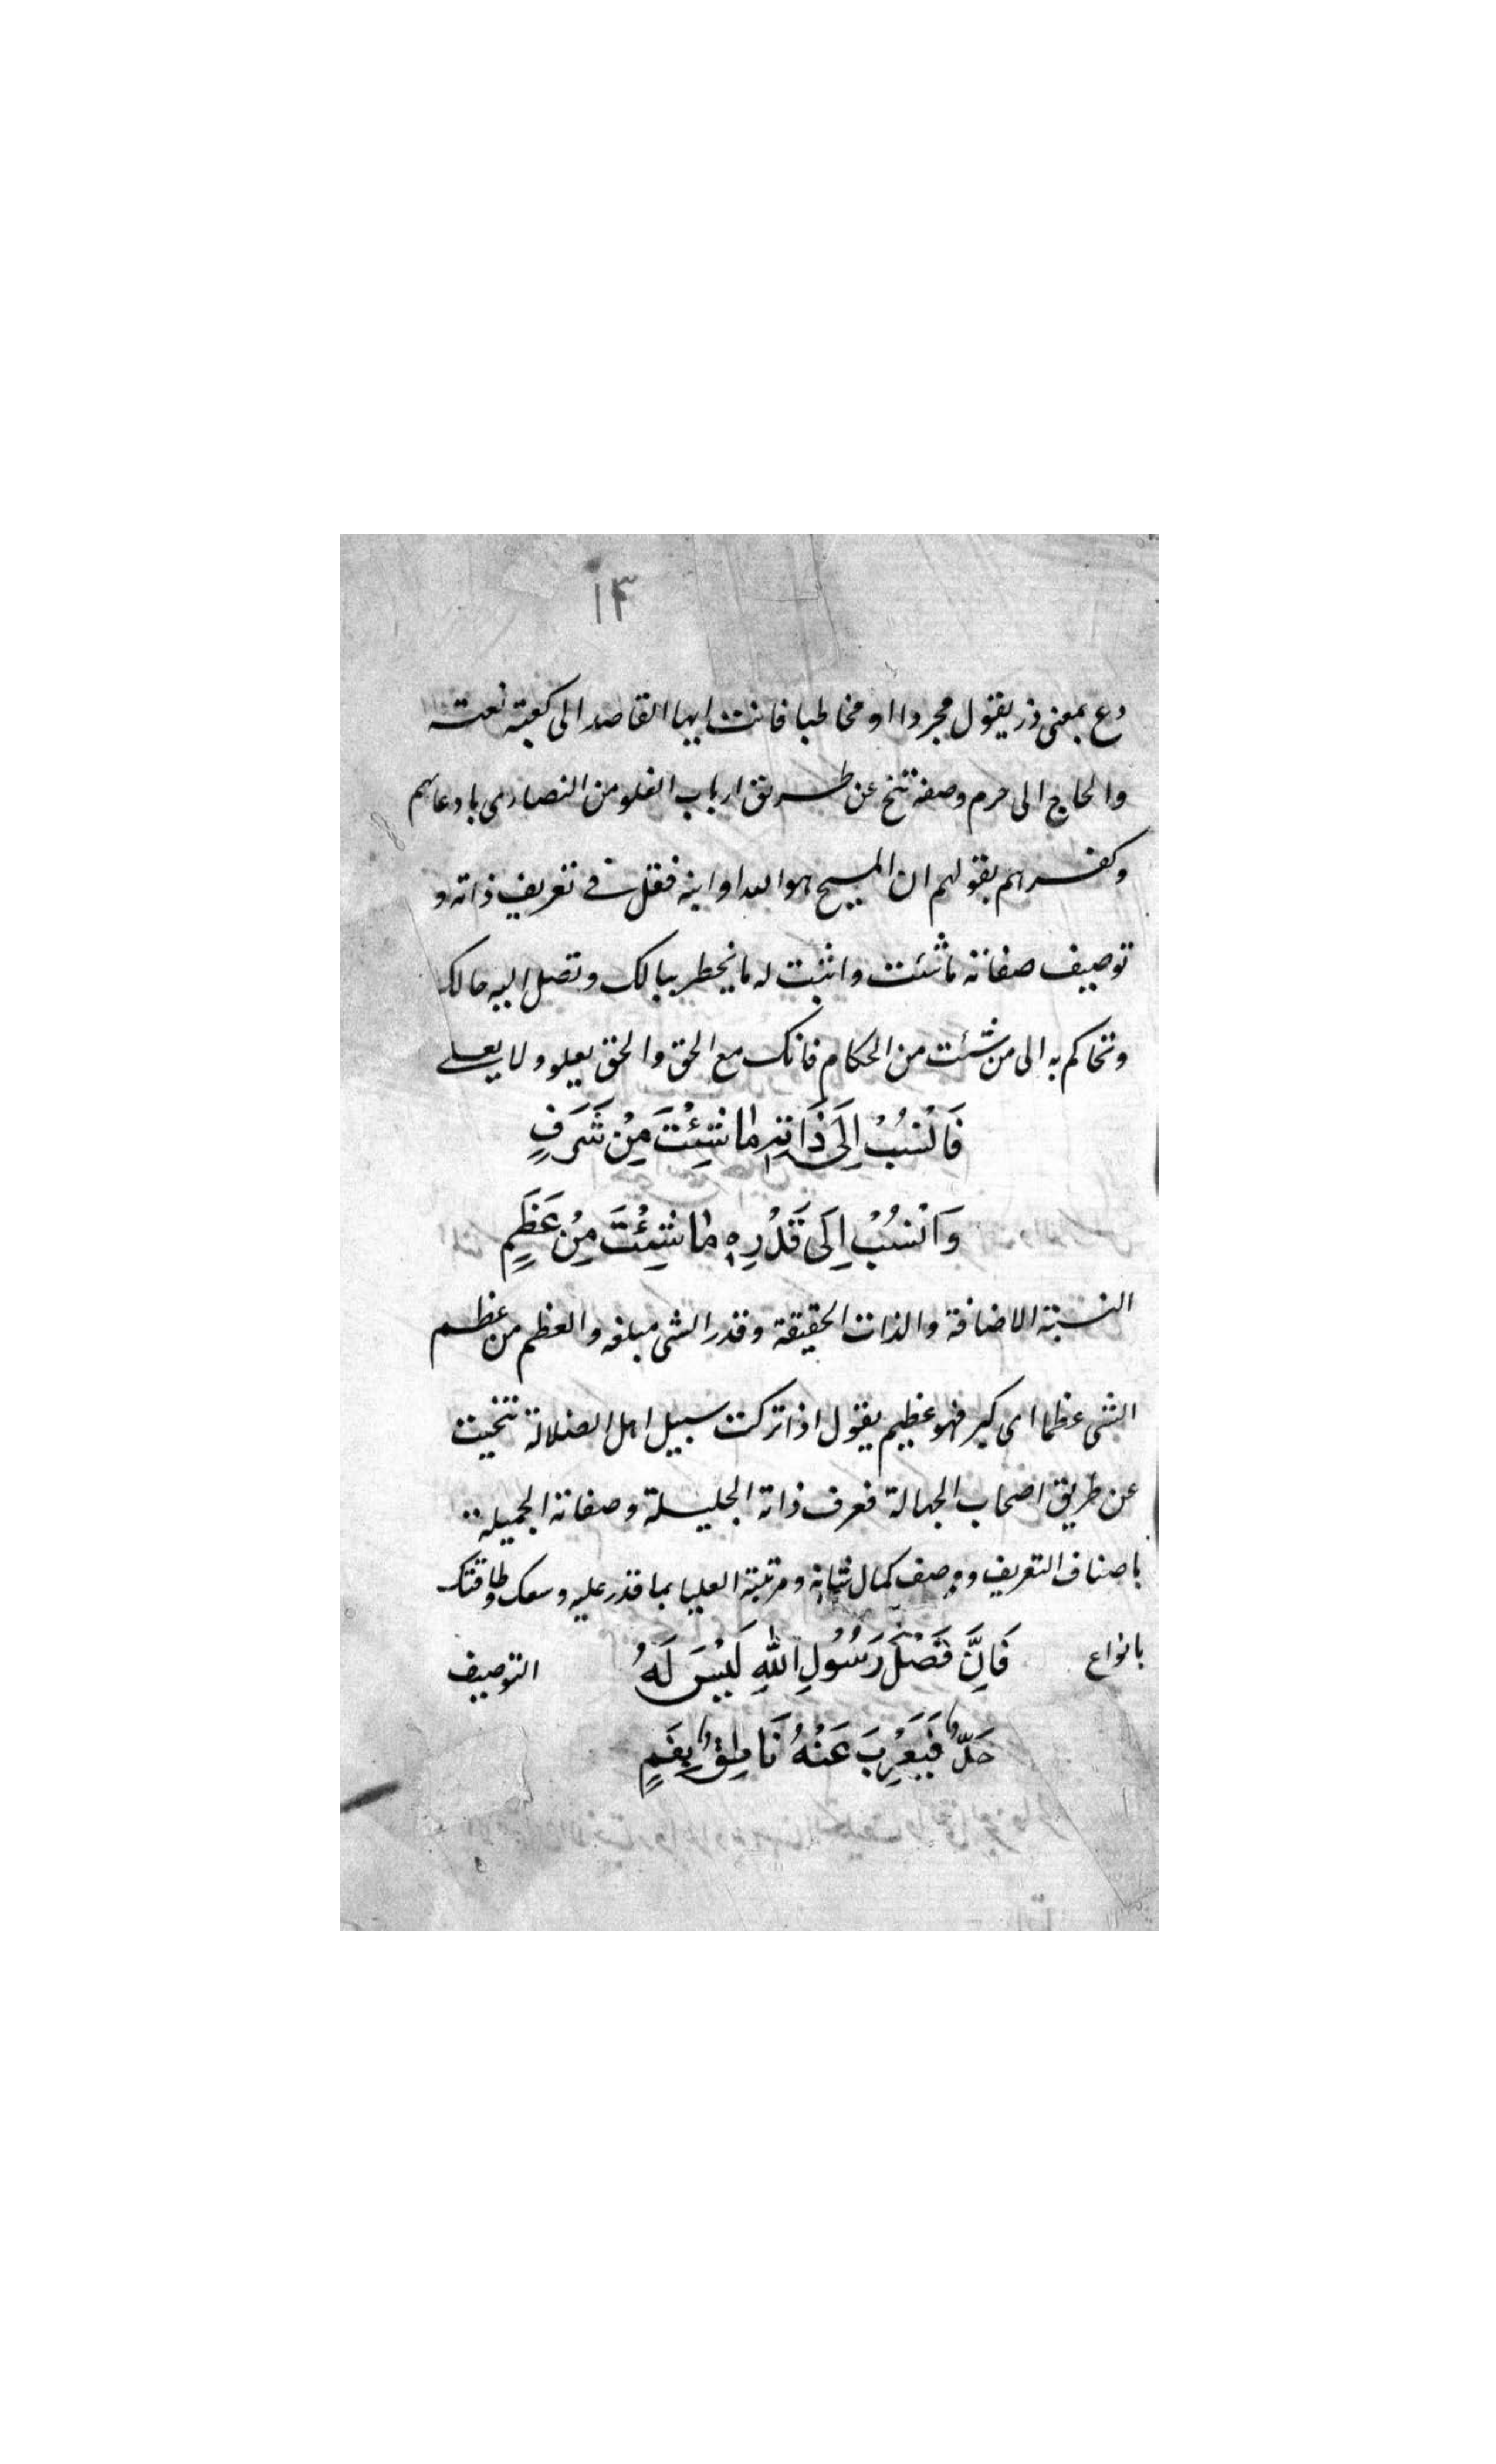 ١٣
دع بمعنى ذر يقول مجردا او مخاطبا فانت ايها القاصد الى كعبة نعته
والحاج الى حرم وصفه تنح عن طريق ارباب الغلو من النصارى بادعائهم
وكفرهم بقولهم ان المسيح هو الله او ابنه فقل فى تعريف ذاته و
توصيف صفاته ما شئت واثبت له ما يخطر ببالك وتصل اليه حالك
وتحاكم به الى من شئت من الحكام فانك مع الحق والحق يعلو ولا يعلى
فَانْسُبْ اِلَى ذَاتِهٖ مَا شِئْتَ مِنْ شَرَفٍ
وَانْسُبْ اِلَى قَدْرِهٖ مَا شِئْتَ مِنْ عَظَمٍ
النسبة الاضافة والذات الحقيقة وقدر الشى مبلغه والعظم من عظم
الشى عظما اى كبر فهو عظيم يقول اذا تركت سبيل اهل الضلالة تنحيت
عن طريق اصحاب الجهالة فعرف ذاته الجليلة وصفاته الجميلة
باصناف التعريف ووصف كمال شانه ومرتبته العليا بما قدر عليه وسعك وطاقتك
بانواع فَاِنَّ فَضْلَ رَسُوْلِ اللّٰهِ لَيْسَ لَهُ التوصيف
حَدٌّ فَيُعْرِبَ عَنْهُ نَاطِقٌ بِفَمٍ